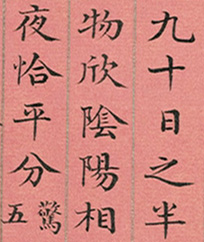 九十日之半
物欣陰陽相
夜恰平分驚
五